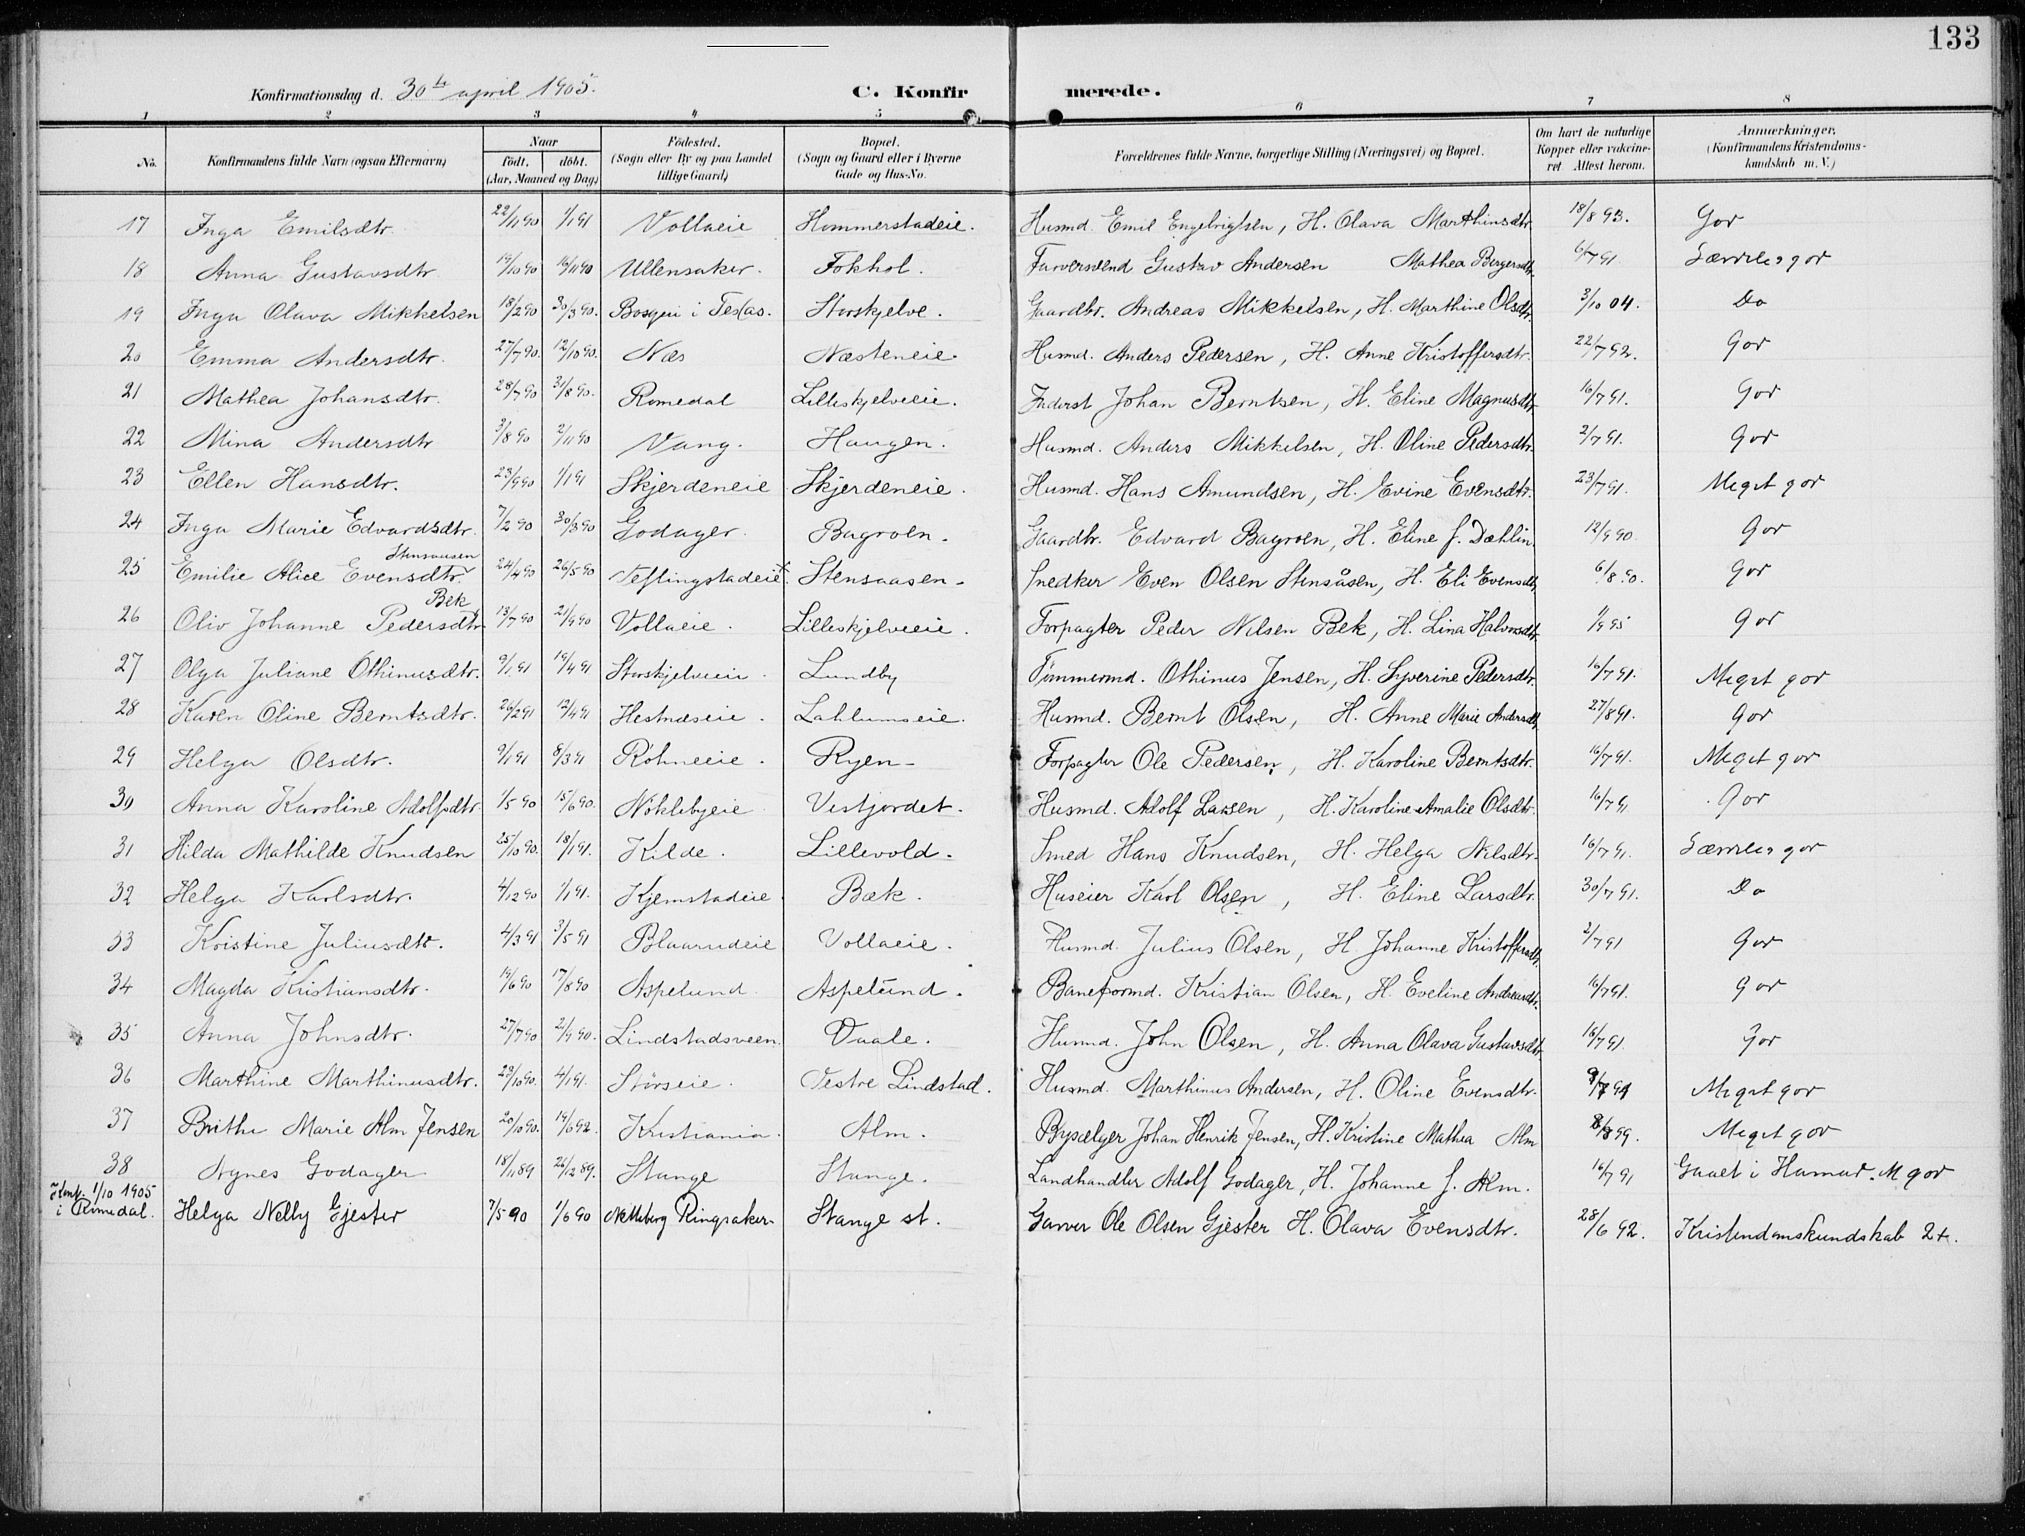 133
Konfirmationsdag d. 30te april 1905. C. Konfirmerede.
1 2 3 4 5 6 7 8
No. Konfirmandens fulde Navn (ogsaa Efternavn) Naar födt. döbt. (Aar, Maaned og Dag) Födested. (Sogn eller By og paa Landet tillige Gaard) Bopæl. (Sogn og Gaard eller i Byerne Gade og Hus-No. Forældrenes fulde Navne, borgerlige Stilling (Næringsvei) og Bopæl. Om havt de naturlige Kopper eller vakcineret. Attest herom. Anmærkninger. (Konfirmandens Kristendomskundskab m. V.)
17 Inga Emilsdtr. 22/11 90 1/1 91 Vollaeie Hommerstadeie. Husmd. Emil Engebrigtsen, H. Olava Marthinsdtr. 18/8 93. Gor
18 Anna Gustavsdtr 14/10 90 16/11 90 Ullensaker. Fokhol. Farversvend Gustav Andersen Mathea Bergersdtr. 6/7 91. Særdeles gor
19 Inga Olava Mikkelsen 18/2 90 30/3 90. i Texas. Storskjelve. Gaardbr. Andreas Mikkelsen, H. Marthine Olsdtr. 3/10 04. Do
20 Emma Andersdtr. 27/7 90. 12/10 90. Næs Næsteneie. Husmd. Anders Pedersen, H. Anne Kristoffersdtr. 22/7 92. Gor
21 Mathea Johansdtr. 28/7 90 31/8 90. Romedal Lilleskjelveeie. Inderst Johan Berntsen, H. Eline Magnusdtr. 16/7 91. Gor
22 Mina Andersdtr 3/8 90 2/11 90 Vang. Haugen. Husmd. Anders Mikkelsen, H. Oline Pedersdtr. 2/7 91. Gor
23 Ellen Hansdtr. 23/9 90 1/1 91 Skjerdeneie Skjerdeneie. Husmd. Hans Amundsen, H. Evine Evensdtr. 23/7 91. Meget gor
24 Inga Marie Edvardsdtr. 7/2 90 30/3 90 Godager. Bagroen. Gaardbr. Edvard Bagroen, H. Eline J. Dæhlin. 12/9 90. Gor
25 Emilie Alice Evensdtr. Stensaasen 24/4 90 26/5 90 Teflingstadeie. Stensaasen. Snedker Even Olsen Stensåsen, H. Eli Evensdtr. 6/8 90. Gor
26 Oliv Johanne Pedersdtr Bek 13/7 90 21/9 90 Vollaeie. Lilleskjelveeie. Forpagter Peder Nilsen Bek, H. Lina Halvorsdtr. 1/9 95 Gor
27 Olga Juliane Othinusdtr. 9/1 91 19/4 91 Storskjelveeie. Lundby Tømmermd. Othinus Jensen, H. Syverine Pedersdtr. 16/7 91. Meget gor
28 Karen Oline Berntsdtr. 26/2 91 12/4 91 Hestnæseie. Lahlumseie. Husmd. Bernt Olsen, H. Anne Marie Andersdtr. 27/8 91. Gor
29 Helga Olsdtr. 9/1 91 8/3 91 Røhneeie. Ryen. Forpagter Ole Pedersen, H. Karoline Berntsdtr. 16/7 91. Meget gor
30 Anna Karoline Adolfsdtr. 1/5 90 15/6 90. Nøklebyeie Vestjordet. Husmd. Adolf Larsen, H. Karoline Amalie Olsdtr. 16/7 91 Gor
31 Hilda Mathilde Knudsen 25/10 90. 18/1 91. Kilde. Lillevold. Smed Hans Knudsen, H. Helga Nilsdtr. 16/7 91. Særdeles gor
32 Helga Karlsdtr. 4/12 90 1/1 91. Kjemstadeie Bæk. Huseier Karl Olsen, H. Eline Larsdtr. 30/7 91. Do
33 Kristine Juliusdtr. 4/3 91 3/5 91 Blaarudeie Vollaeie. Husmd. Julius Olsen, H. Johanne Kristoffersdtr. 2/7 91 Gor
34 Magda Kristiansdtr. 14/6 90 17/8 90 Aspelund. Aspelund. Baneformd. Kristian Olsen, H. Eveline Andreasdtr. 16/7 91. Gor
35 Anna Johnsdtr. 27/7 90 2/9 90. Lindstadsveen Vaale. Husmd. John Olsen, H. Anna Olava Gustavsdtr. 16/7 91. Gor
36 Marthine Marthinusdtr. 23/10 90. 4/1 91. Størseie. Vestre Lindstad. Husmd. Marthinus Andersen, H. Oline Evensdtr. Meget gor
37 Brithe Marie Alm Jensen 20/10 90. 14/6 92. Kristiania. Alm. Bysælger Johan Henrik Jensen, H. Kristine Mathea Alm 99. Meget gor
38 Agnes Godager 18/11 89 26/12 89. Stange Stange. Landhandler Adolf Godager, H. Johanne J. Alm. 16/7 91 Gaaet i Hamar. M gor
Konf. 1/10 1905 i Romedal. Helga Nelly Gjester 7/5 90 1/6 90 Nettleberg Ringsaker. Stange st. Garver Ole Olsen Gjester H. Olava Evensdtr. 28/6 92. Kristendomskundskab 2+.